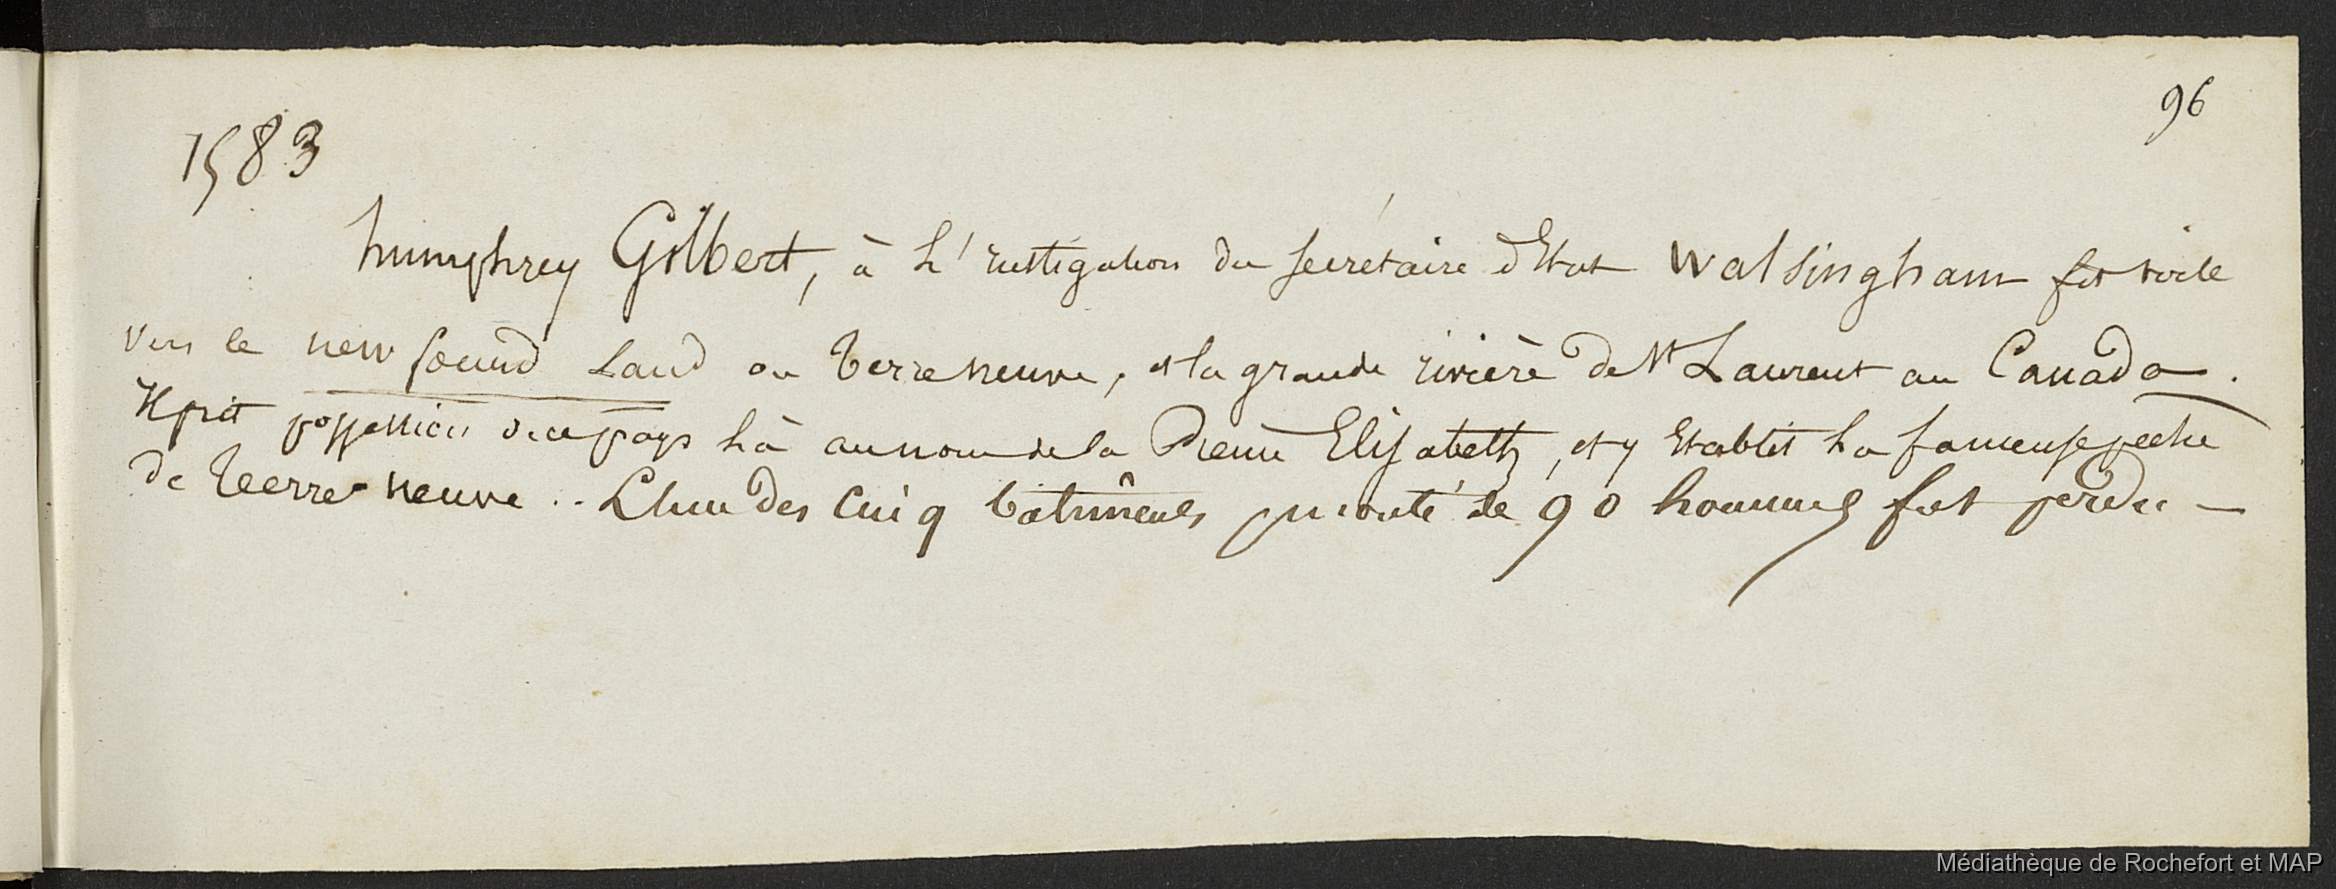 96
1583
humphrey Gilbert, à L'instigation du secrétaire d'Etat Walsingham fit voile
Vers le new found Land ou terre neuve, et la grande rivière de St Laurent au Canada.
Il prit possession de ce pays là au nom de la Reine Elisabeth, et y Etablit La fameuse peche
de terre neuve .. L'un des Cinq bâtiments monté de 90 hommes fut perdu —
Médiathèque de Rochefort et MAP